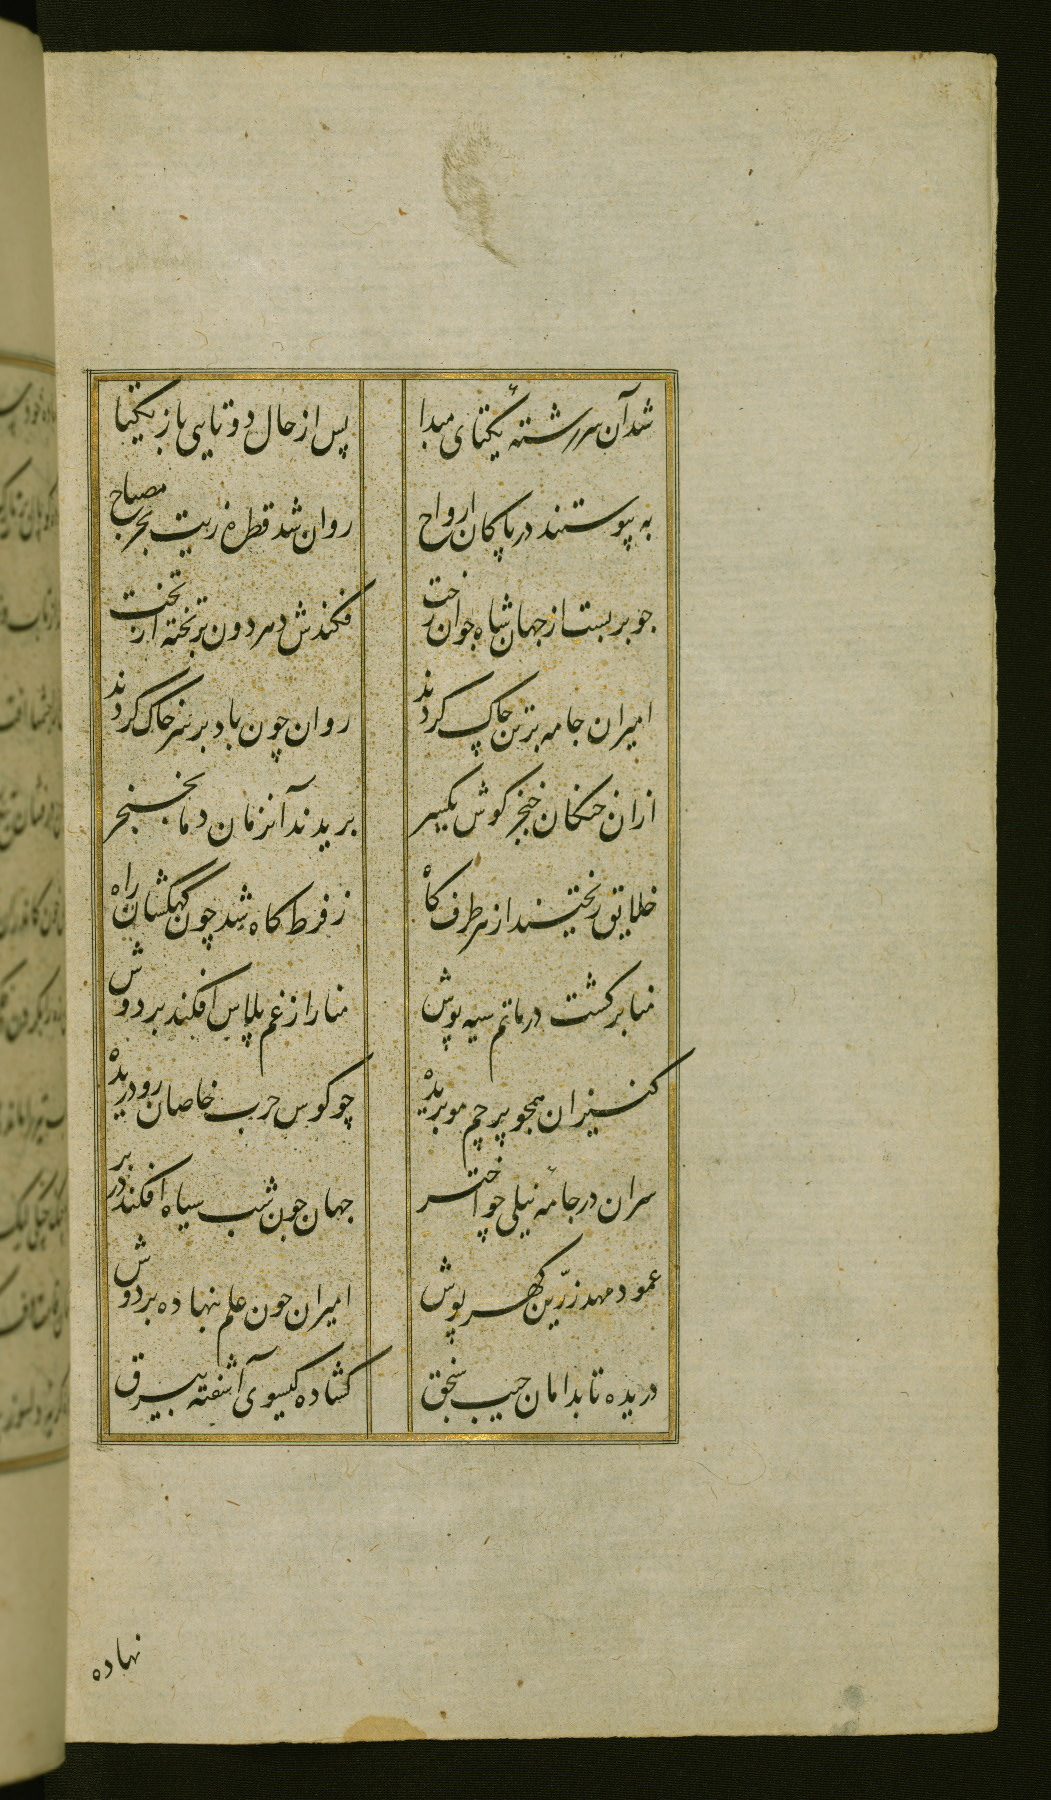 شد آن سررشتهٔ یکتای مبدا
پس از حال دو تایی باز یکتا
به پیوستند در پاکان ارواح
روان شد قطرهٔ زیت بحر مصباح
جو بر بست از جهان شاه جوان رخت
فکندش دهر دون بر تخته از تخت
امیران جامه بر تن چاک کردند
روان چون باد بر سر خاک کردند
ازان خنکان خنجر کوش یکسر
بریدند آنزمان دمها بخنجر
خلایق ریختند از هر طرف کاه
ز فرط کاه شد چون کهکشان راه
منابر کشت در ماتم سیه پوش
منار از غم پلاس افکند بر دوش
کنیزان همجو پرچم مو بریده
چو کوس حرب خاصان رو دریده
سران در جامهٔ نیلی چو اختر
جهان جون شب سیاه افکند در بر
عمود مهد زرّین کهر پوش
امیران جون علم بنهاده بر دوش
دریده تا بدامان جیب سنجق
کشاده کیسوی آشفته بیرق
نهاده